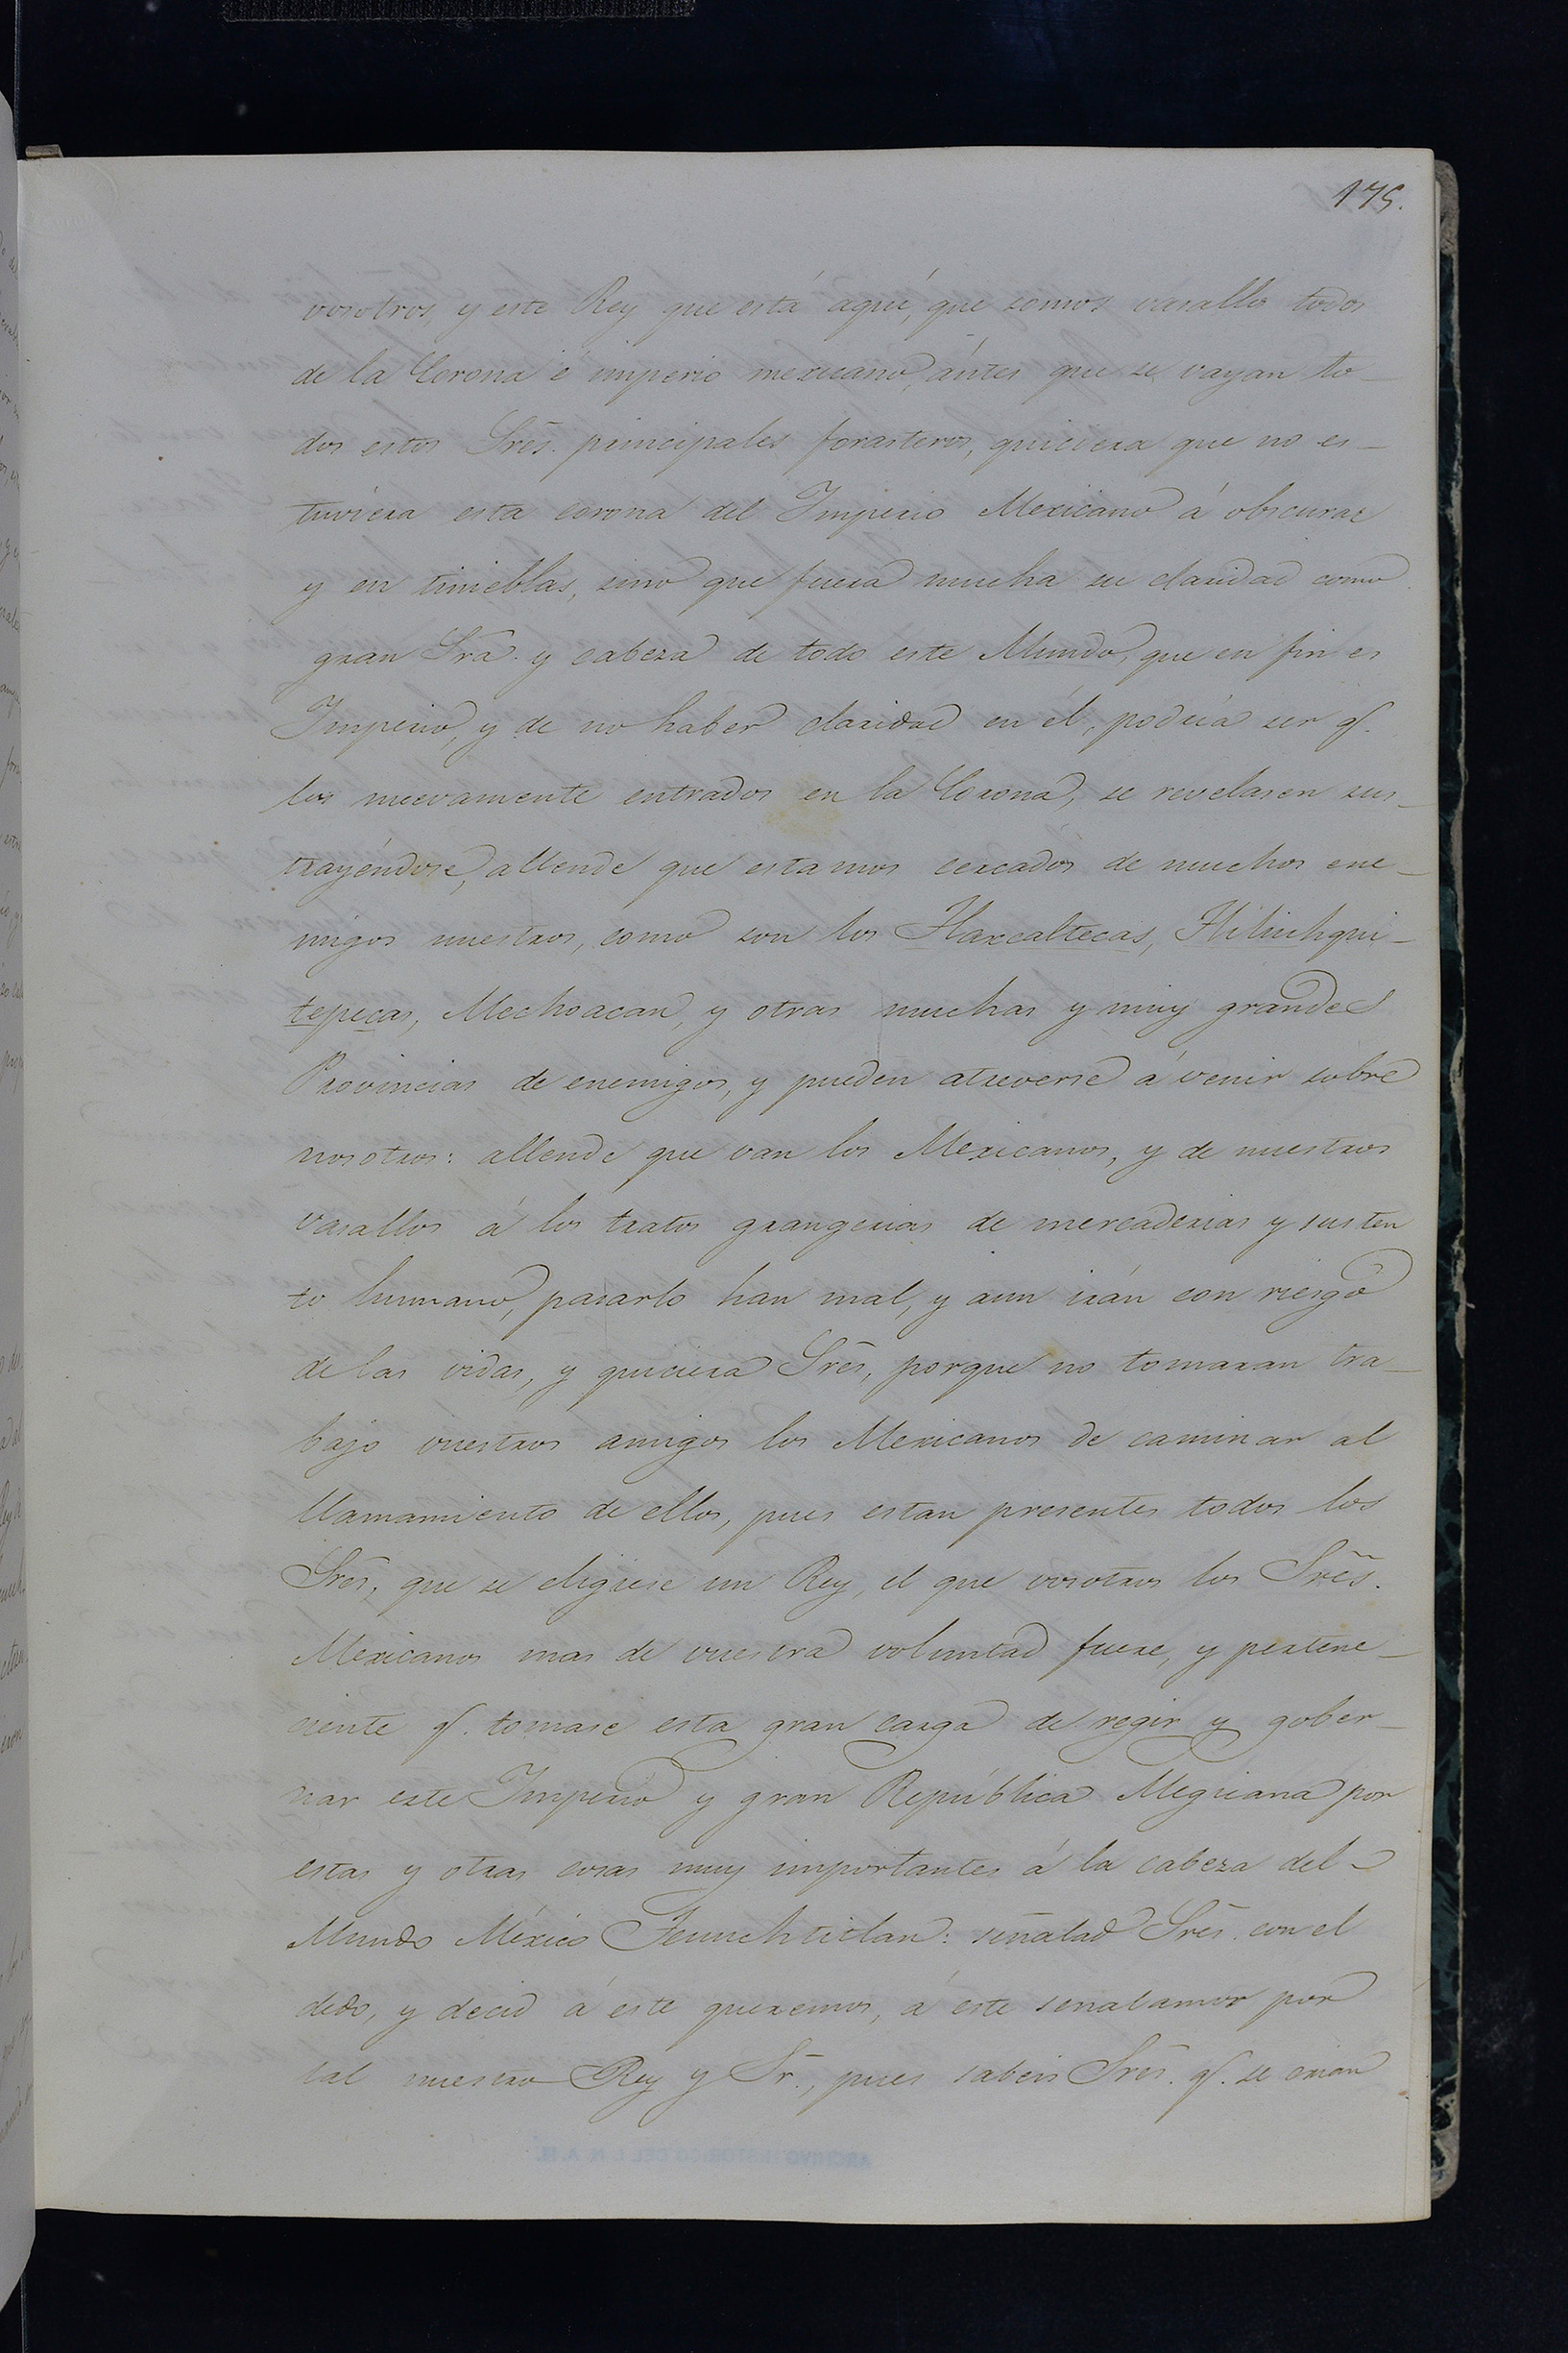 175.
vosotros, y este Rey que está aquí, que somos vasallos todos
de la Corona é imperio mexicano, ántes que se vayan to-
dos estos Srēs. principales forasteros, quiciera que no es-
tuviera esta corona del Imperio Mexicano á obscuras
y en tinieblas, sino que fuera mucha su claridad como
gran Srā. y cabeza de todo este Mundo, que en fin es
Imperio, y de no haber claridad en él, podría ser q.
los nuevamente entrados en la Corona, se revelasen sus-
trayéndose, allende que estamos cercados de muchos ene-
migos nuestros, como son los Tlaxcaltecas, Tliliuhqui-
tepecas, Mechoacan, y otras muchas y muy grandes
Provincias de enemigos, y pueden atreverse á venir sobre
nosotros: allende que van los Mexicanos, y de nuestros
vasallos á los tratos grangerias de mercaderias y susten
to humano, pasarlo han mal, y aun irán con riesgo
de las vidas, y quiciera Srēs, porque no tomaran tra-
bajo vuestros amigos los Mexicanos de caminar al
llamamiento de ellos, pues estan presentes todos los
Srēs, que se eligiese un Rey, el que vosotros los Srēs.
Mexicanos mas de vuestra voluntad fuere, y pertene-
ciente q. tomase esta gran carga de regir y gober-
nar este Imperio y gran República Megicana por
estas y otras cosas muy importantes á la cabeza del
Mundo México Tenuchtitlan: señalad Srēs. con el
dedo, y decid á este queremos, á este señalamos por
tal nuestro Rey y Sr., pues sabeis Srēs. q. se crian